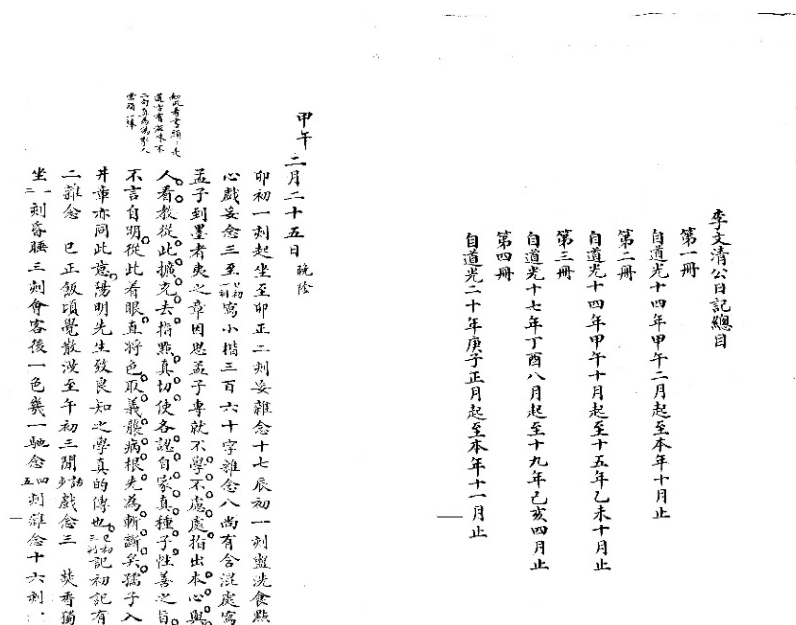 李文清公日記總目
第一冊
自道光十四年甲午二月起至本年十月止
第二冊
自道光十四年甲午十月起至十五年乙未十月止
第三冊
自道光十七年丁酉八月起至十九年己亥四月止
第四冊
自道光二十年庚子正月起至本年十一月止
甲午二月二十五日 晚陰
卯初一刻起坐至卯正二刻妄雜念十七辰初一刻盥洗食點
心戲妄念三至寫小楷三百六十字雜念八尚有含混處寫
孟子到墨者夷之章因思孟子專就不學不慮處指出本心與
人看教從此擴充去指點真切使各認自家真種子性善之旨
不言自明從此着眼直將色取義襲病根先為斬斷矣孺子入
井章亦同此意陽明先生致良知之學真的傳也記初記有
二雜念 巳正飯頃覺散漫至午初三閒戲念三 焚香獨
坐一刻昏睡三刻會客後一色幾一馳念四刻雜念十六刻